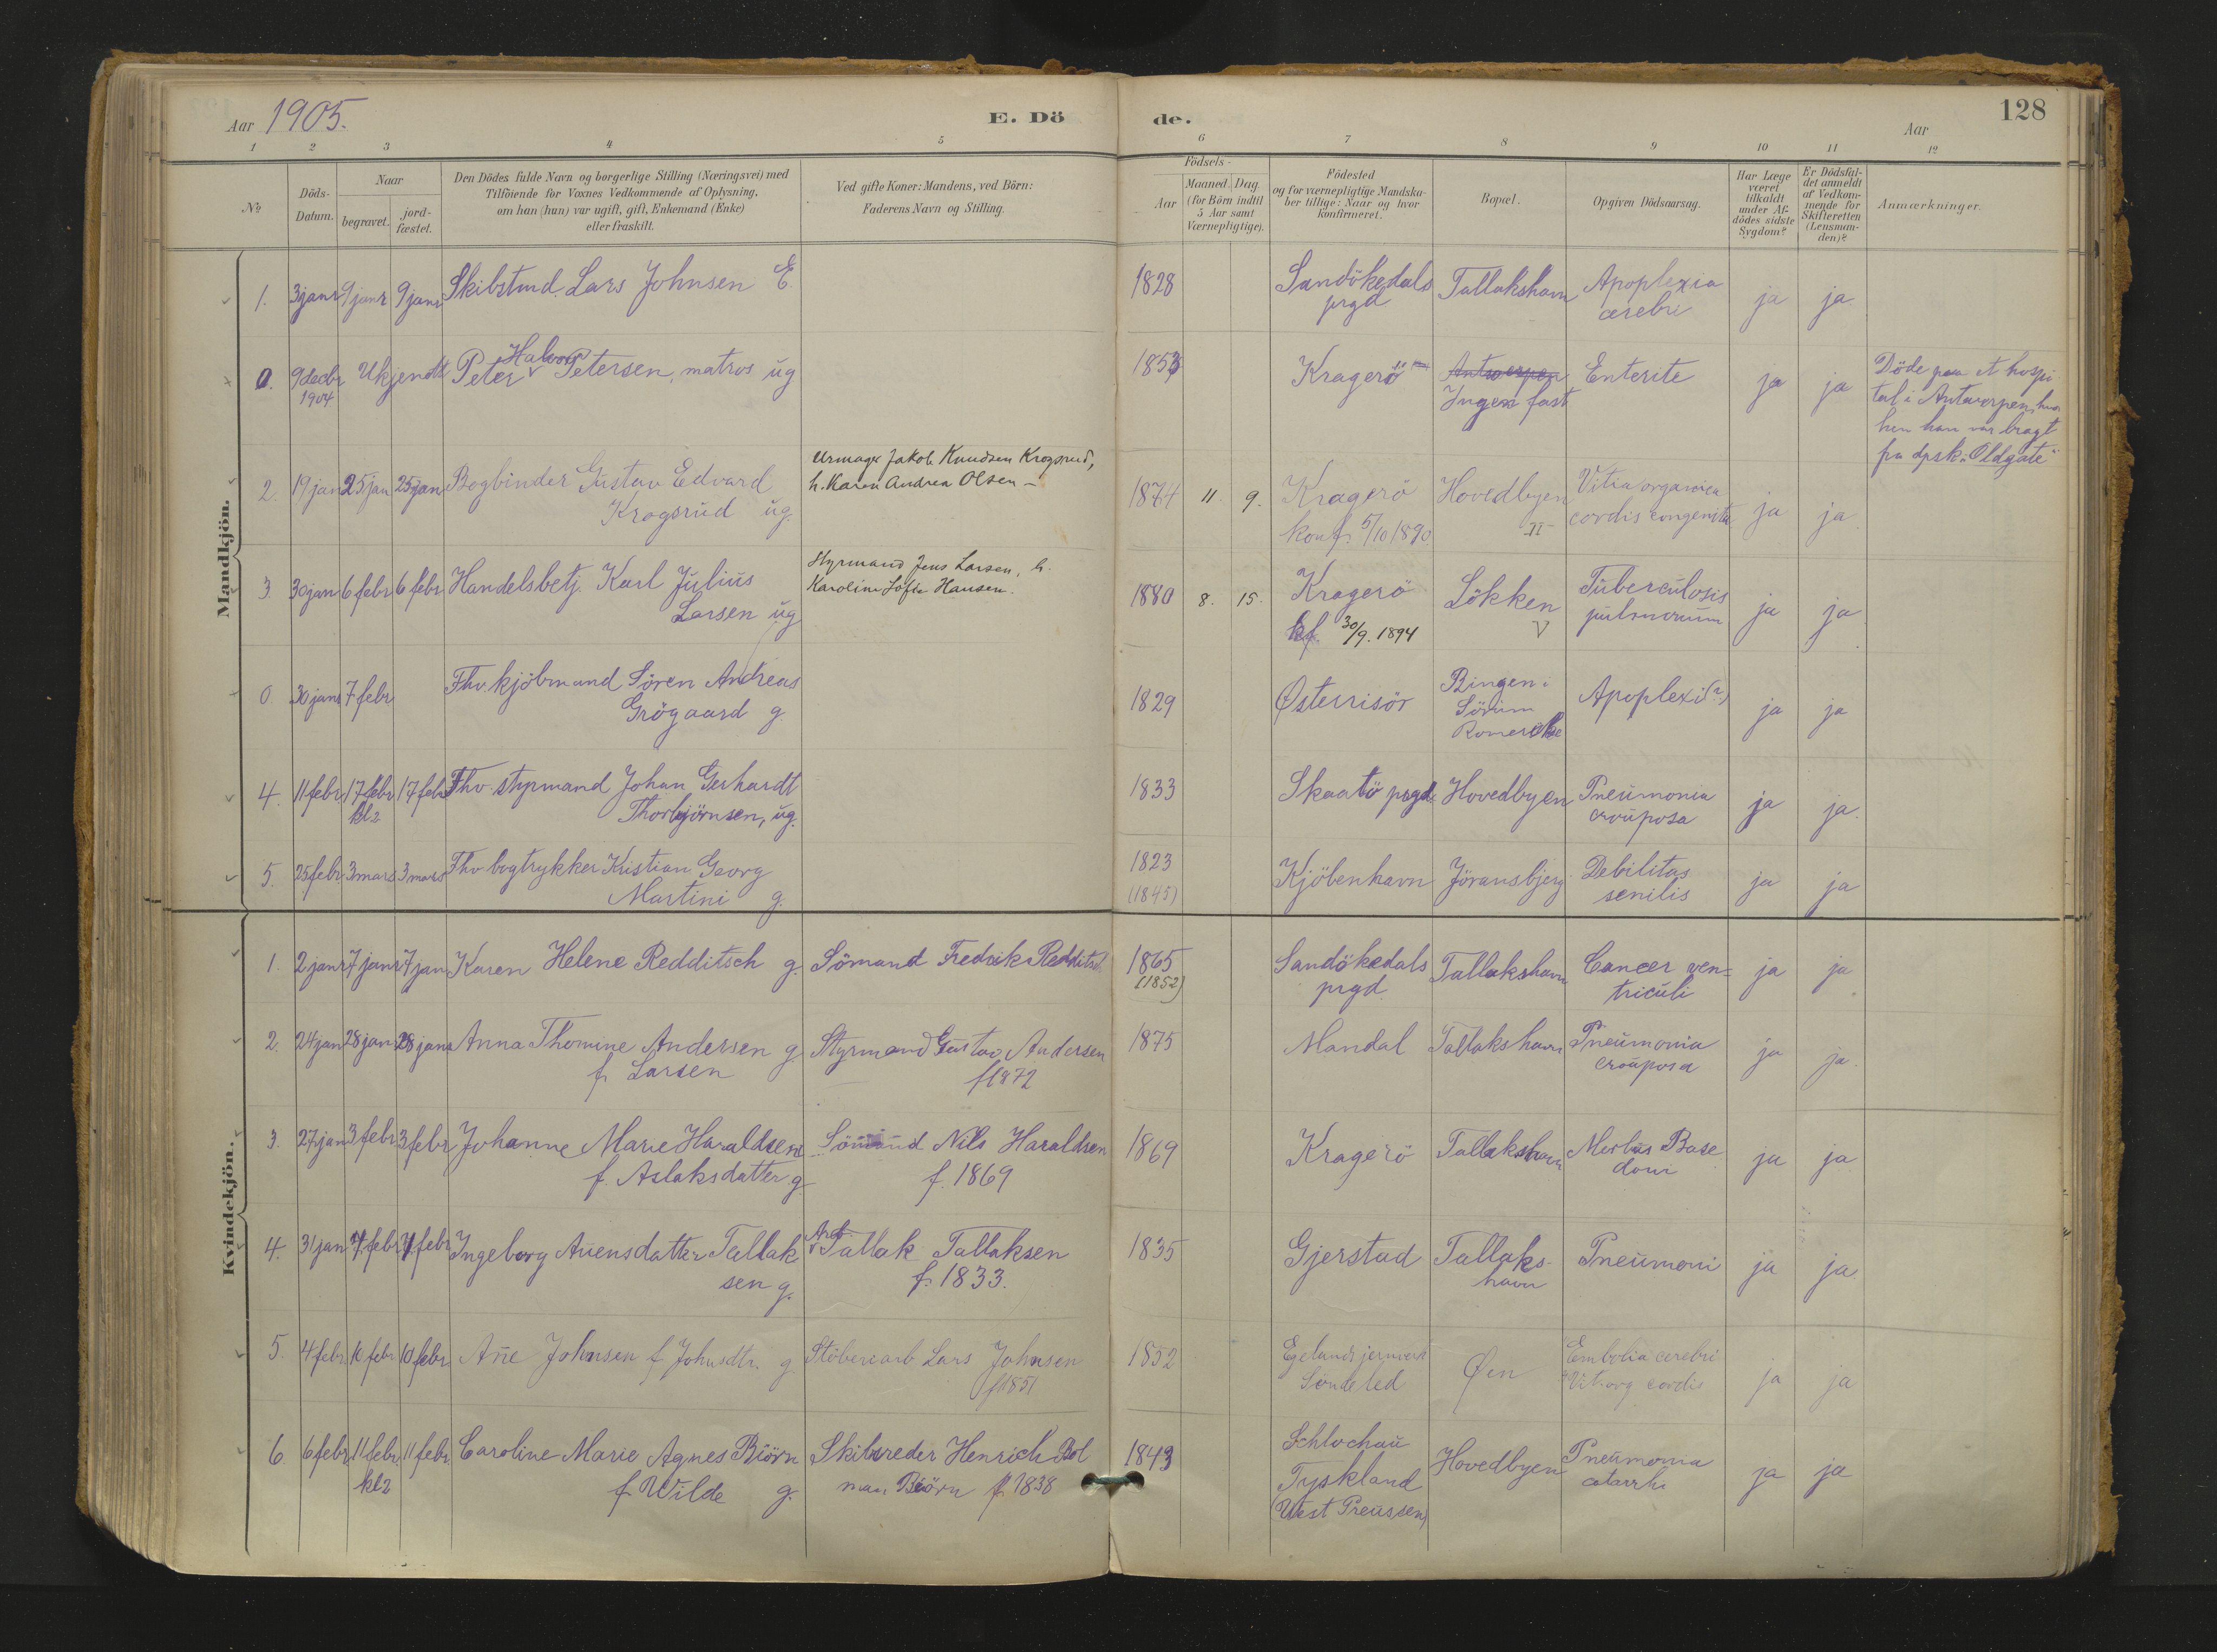 Aar 1905.
E. Dö
de.
128
Aar
1 2 3 4 5 6 7 8 9 10 11 12
№
Döds-
Datum.
Naar
begravet.
jord-
fæstet.
Den Dödes fulde Navn og borgerlige Stilling (Næringsvei) med
Tilföiende for Voxnes Vedkommende af Oplysning,
om han (hun) var ugift, gift, Enkemand (Enke)
eller fraskilt.
Ved gifte Koner: Mandens, ved Börn:
Faderens Navn og Stilling.
Födsels-
Aar
Maaned. Dag
(for Börn indtil
5 Aar samt
Værnepligtige).
Födested
og for værnepligtige Mandska-
ber tillige: Naar og hvor
konfirmeret.
Bopæl.
Opgiven Dödsaarsag.
Har Læge
været
tilkaldt
under Af-
dödes sidste
Sygdom?
Er Dödsfal-
det anmeldt
af Vedkom-
mende for
Skifteretten
(Lensman-
den)?
Anmærkninger.
Mandkjön.
1. 3 janr 9 janr 9 janr Skibstmd. Lars Johnsen E. 1828 Sandökedals Tallakshavn Apoplexia ja ja
prgd cerebri
0. 9 decbr Ukjendt Peter Halvor Petersen, matros ug 1853 Kragerö Antwerpen Enterite ja ja Döde paa et hospi
1904 Ingen fast tal i Antwerpen, hvor
hen han var bragt
fra dpsk. "Oldgate"
2. 19 jan 25 jan 25 jan Bogbinder Gustav Edvard Urmager Jakob Knudsen Krogsrud, 1874 11. 9. Kragerö Hovedbyen Vitia organica ja ja
Krogsrud ug. h. Karen Andrea Olsen – konf. 5/10 1890 II cordis congenita
3. 30 jan 6 febr 6 febr Handelsbetj. Karl Julius Styrmand Jens Larsen, h. 1880 8. 15. Kragerö Lökken Tuberculosis ja ja
Larsen ug Karoline Sofie Hansen. kf. 30/9. 1894 V pulmonum
0 30 janr 7 febr Fhv. kjöbmand Sören Andreas 1829 Østerrisör Bingen i Apoplexi (?) ja ja
Grögaard g Sörum
Romerike
4. 11 febr 17 febr 17 febr Fhv. styrmand Johan Gerhardt 1833 Skaatö prgd. Hovedbyen Pneumonia ja ja.
kl 2 Thorbjörnsen, ug. crouposa
5. 25 febr 3 mars 3 mars Fhv bogtrykker Kristian Georg 1823 Kjöbenhavn Jöransbjerg Debilitas ja ja
Martini g. (1845) senilis
Kvindekjön.
1. 2 janr 7 janr 7 jan Karen Helene Redditsch g. Sömand Fredrik Redditsch 1865 Sandökedals Tallakshavn Cancer ven= ja ja
(1852) prgd. triculi
2. 24 jan 28 jan 28 janr Anna Thomine Andersen g Styrmand Gustav Andersen 1875 Mandal Tallakshavn Pneumonia ja ja.
f. Larsen f 1872 crouposa
3. 27 jan 3 febr 3 febr Johanne Marie Haraldsen Sömand Nils Haraldsen 1869 Kragerö Tallakshavn Morbus Base ja ja
f. Aslaksdatter g. f. 1869 dowi
4. 31 jan 7 febr 7 febr Ingeborg Auensdatter Tallak Arb. Tallak Tallaksen 1835 Gjerstad Tallaks- Pneumoni ja ja
sen g. f. 1833. havn
5. 4 febr. 10 febr 10 febr Ane Johnsen f. Johnsdtr. g Stöberiarb Lars Johnsen 1852 Egelands jernverk Øen Embolia cerebri ja ja
f 1851 Söndeled Vit. org cordis
6. 6 febr 11 febr 11 febr Caroline Marie Agnes Biörn Skibsreder Henrich Bol 1843 Schlochau Hovedbyen Pneumonia ja ja
kl 2 f. Wilde g. man Biörn f. 1838 Tyskland catarrh.
(West Preussen)